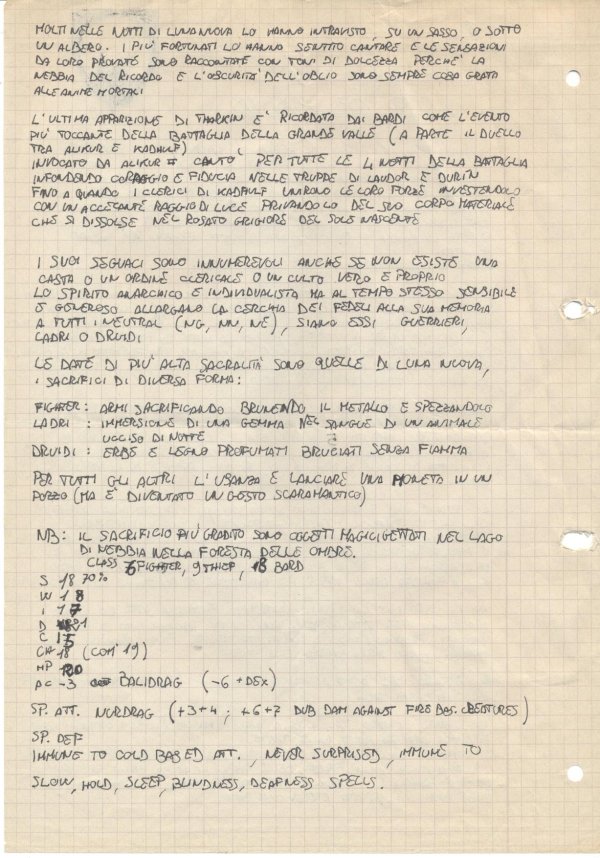 MOLTI NELLE NOTTI DI LUNA NUOVA LO HANNO INTRAVISTO, SU UN SASSO, O SOTTO
UN ALBERO. I PIU' FORTUNATI LO HANNO SENTITO CANTARE E LE SENSAZIONI
DA LORO PROVATE SONO RACCONTATE CON TONI DI DOLCEZZA PERCHE' LA
NEBBIA DEL RICORDO E L'OBSCURITA' DELL'OBLIO SONO SEMPRE COSA GRATA
ALLE ANIME MORTALI
L'ULTIMA APPARIZIONE DI THARKIN E' RICORDATA DAI BARDI COME L'EVENTO
PIU' TOCCANTE DELLA BATTAGLIA DELLA GRANDE VALLE (A PARTE IL DUELLO
TRA ALIKUR E KADHULF)
INVOCATO DA ALIKUR CANTO' PER TUTTE LE 4 NOTTI DELLA BATTAGLIA
INFONDENDO CORAGGIO E FIDUCIA NELLE TRUPPE DI LAUDOR E DURIN
FINO A QUANDO I CLERICI DI KADHULF UNIRONO LE LORO FORZE INVESTENDOLO
CON UN ACCECANTE RAGGIO DI LUCE PRIVANDOLO DEL SUO CORPO MATERIALE
CHE SI DISSOLSE NEL ROSATO GRIGIORE DEL SOLE NASCENTE
I SUOI SEGUACI SONO INNUMEREVOLI ANCHE SE NON ESISTE UNA
CASTA O UN ORDINE CLERICALE O UN CULTO VERO E PROPRIO
LO SPIRITO ANARCHICO E INDIVIDUALISTA MA AL TEMPO STESSO SENSIBILE
E GENEROSO ALLARGANO LA CERCHIA DEI FEDELI ALLA SUA MEMORIA
A TUTTI I NEUTRAL (NG, NN, NE), SIANO ESSI GUERRIERI,
LADRI O DRUIDI
LE DATE DI PIU' ALTA SACRALITA' SONO QUELLE DI LUNA NUOVA,
I SACRIFICI DI DIVERSA FORMA:
FIGHTER: ARMI SACRIFICANDO BRUNENDO IL METALLO E SPEZZANDOLO
LADRI : IMMERSIONE DI UNA GEMMA NEL SANGUE DI UN ANIMALE
UCCISO DI NOTTE
DRUIDI : ERBE E LEGNO PROFUMATI BRUCIATI SENZA FIAMMA
PER TUTTI GLI ALTRI L'USANZA E' LANCIARE UNA MONETA IN UN
POZZO (MA E' DIVENTATO UN GESTO SCARAMANTICO)
NB: IL SACRIFICIO PIU' GRADITO SONO OGGETTI MAGICI GETTATI NEL LAGO
DI NEBBIA NELLA FORESTA DELLE OMBRE.
CLASS FIGHTER, 9 THIEF, 18 BARD
S 18 70%
W 18
I 17
D 21
C 15
CH 18 (COM' 19)
HP 120
AC -3 BALIDRAG (-6 + DEX)
SP. ATT. NURDRAG (+3+4; +6+7 DUB DAM AGAINST FIRE BAS. CREATURES)
SP. DEF
IMMUNE TO COLD BASED ATT., NEVER SURPRISED, IMMUNE TO
SLOW, HOLD, SLEEP, BLINDNESS, DEAFNESS SPELLS.